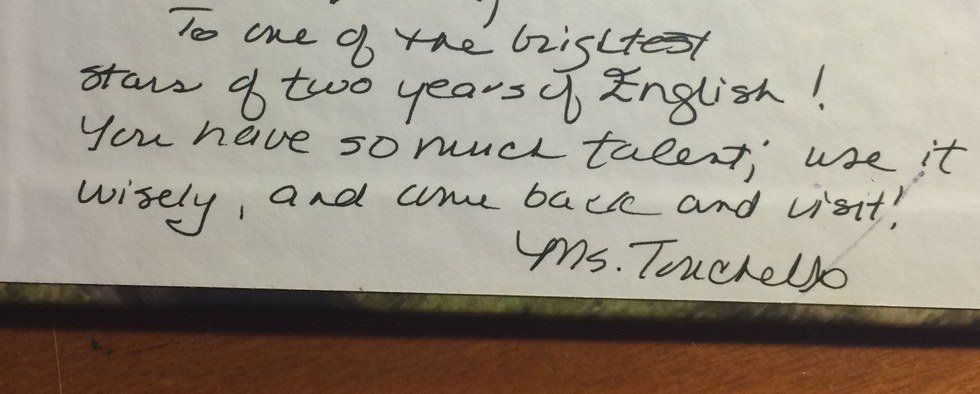 To one of the brightest
stars of two years of English!
You have so much talent; use it
wisely, and come back and visit!
Ms.